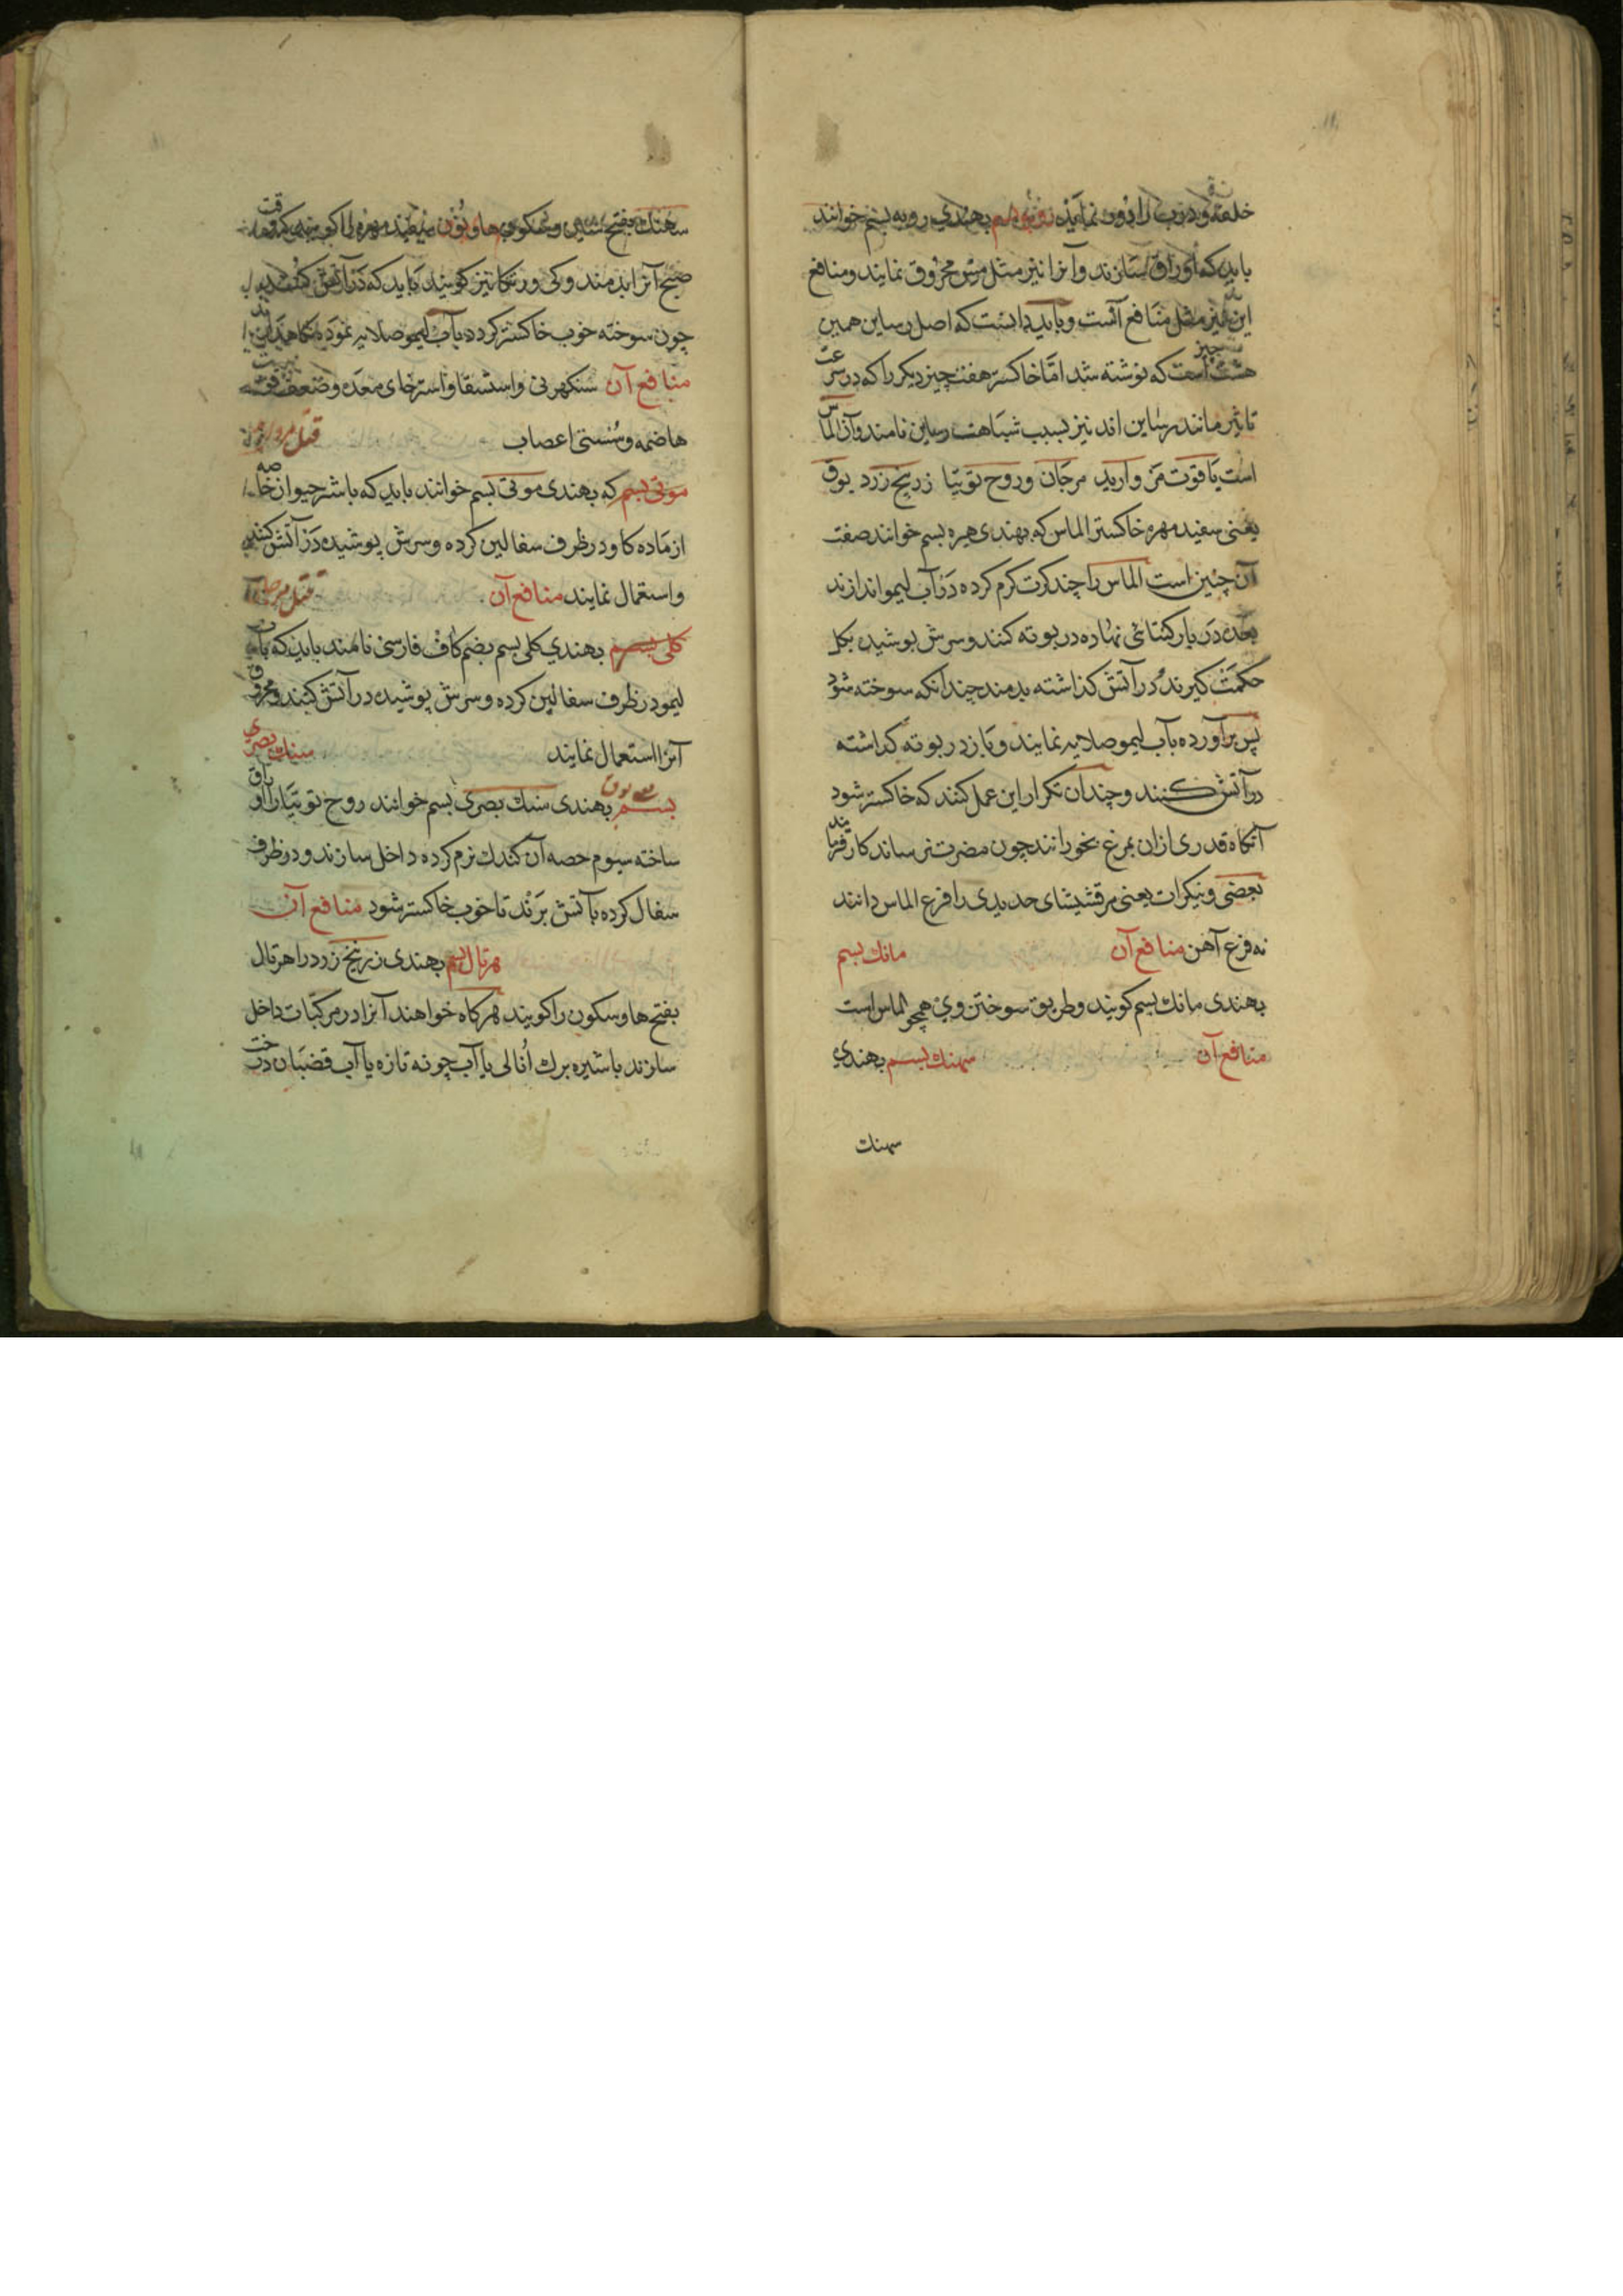 خلفه و درب را بدون نمایند بهندی روپه بسم خوانند
باید که اوراق سازند وانرا نیز مثل مس محروق نمایند و منافع
این نیز مثل منافع آنست و باید دانست که اصل رساین همین
هشت چیز است که نوشته شد اما خاکستر هفت چیز دیکر را که در سرعت
تاثیر مانند رساین اند نیز بسبب شباهت رساین نامند وآن الماس
است یاقوت مروارید مرجان و روح توتیا زرنیخ زرد بوق
یعنی سفید مهره خاکستر الماس که بهندی هیره بسم خوانند صفت
آن چنین است الماس را چند کرت کرم کرده در آب لیمو اندازند
بعده در بارکتائی نهاده در بوته کنند و سرش پوشیده بکل
حکمت کیرند و در آتش کذاشته بدمند چندانکه سوخته شود
پس برآورده بآب لیمو صلایه نمایند و باز در بوته کذاشته
در آتش کنند و چندان تکرار این عمل کنند که خاکستر شود
آنکاه قدری ازان بمرغ بخورانند چون مضرت نرساند کار فرمایند
بعضی وبیکرات یعنی مرقشیشای حدیدی را فرع الماس دانند
نه فرع آهن منافع آن مانک بسم
بهندی مانک بسم کویند و طریق سوختن وی همچو الماس است
منافع آن سهنک بسم بهندی
سهنک
سهنک بفتح سین و سکون ها و نون سفید مهره را کویند که وقت
صبح آنرا بدمند و کویند باید که در آتش کنند
چون سوخته خوب خاکستر کردد بآب لیمو صلایه نموده نکاهدارند
منافع آن سنکهرنی و استسقا و استرخای معده و ضعف قوت
هاضمه و سستی اعصاب قتل مروارید
موتی بسم که بهندی موتی بسم خوانند باید که باشیر حیوان خاصه
از ماده کاو در ظرف سفالین کرده و سرش پوشیده در آتش کنند
و استعمال نمایند منافع آن قتل مرجان
کلی بسم بهندی کلی بسم بضم کاف فارسی نامند باید که بآب
لیمو در ظرف سفالین کرده و سرش پوشیده در آتش کنند و محروق
آنرا استعمال نمایند سنک بصری
بسم بهندی سنک بصری بسم خوانند روح توتیا را اوراق
ساخته سیوم حصه آن کندک نرم کرده داخل سازند و در ظرف
سفال کرده بآتش برند تا خوب خاکستر شود منافع آن
هرتال بسم بهندی زرنیخ زرد را هرتال
بفتح ها و سکون را کویند هرکاه خواهند آنرا در مرکبات داخل
سازند با شیره برک انالی یا آب چونه تازه یا آب قضبان درخت